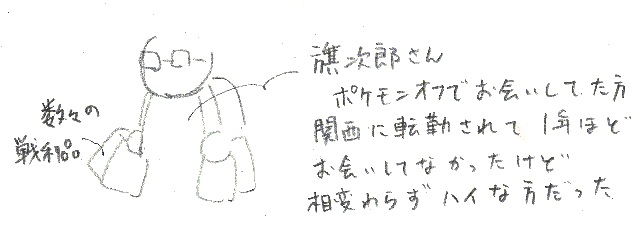 数々の
戦利品
譲次郎さん
ポケモンオフでお会いしてた方
関西に転勤されて1年ほど
お会いしてなかったけど
相変わらずハイな方だった